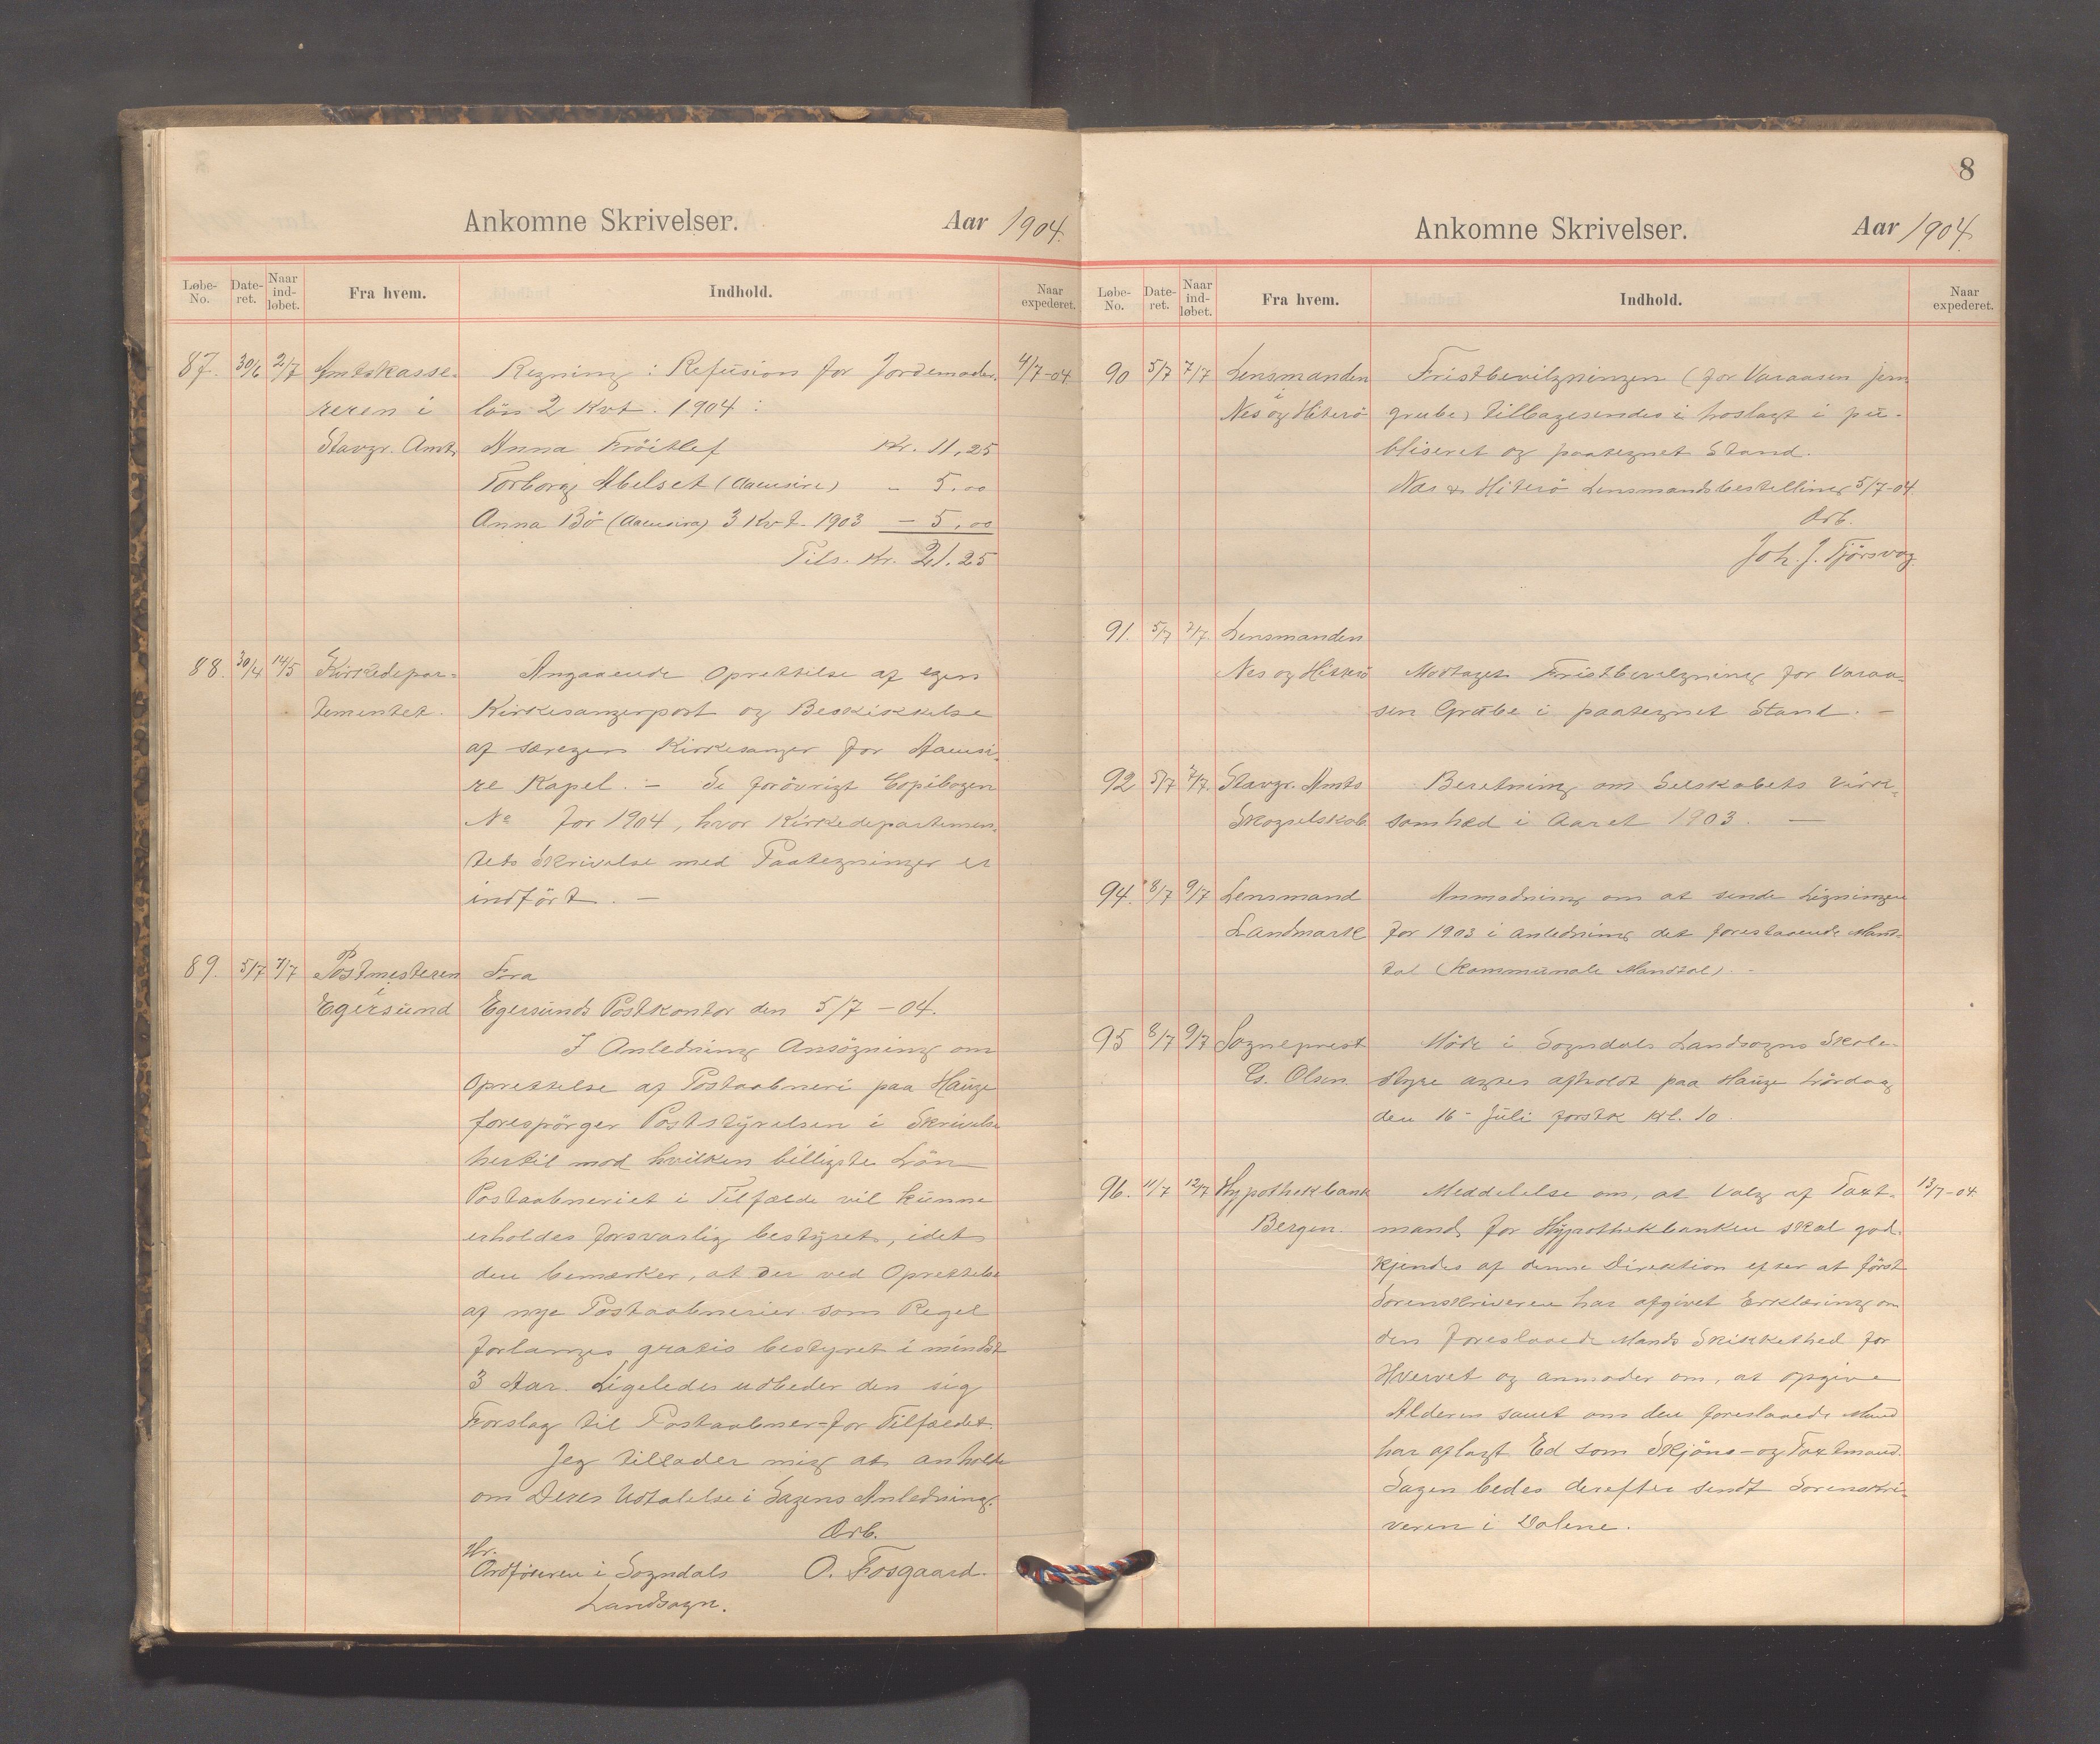 Ankomne Skrivelser. Aar 1904.
Løbe-No. Date-ret. Naar ind-løbet. Fra hvem. Indhold. Naar expederet.
87. 30/6 2/7 Amtskasse- Regning: Refusion for Jordemoder- 4/7-04
reren i løn 2 Kvt. 1904:
Stavgr. Amt Anna Fröitlef Kr. 11,25
Torborg Abelset (Aaensire) - 5.00
Anna Bö (Aaensira) 3 Kvt. 1903 - 5,00
Tils. Kr. 21.25
88. 30/4 14/5 Kirkedepar- Angaaende Oprettelse af egen
tementet. Kirkesangerpost og Beskikkelse
af særegen Kirkesanger for Aaensi-
re Kapel. - Se forövrigt Copibogen
No for 1904, hvor Kirkedepartemen-
tets Skrivelse med Paategninger er
indfört. -
89. 5/7 7/7 Postmesteren Fra
i
Egersund Egersunds Postkontor den 5/7 - 04.
I Anledning Ansögning om
Oprettelse af Postaabneri paa Hauge
forespörger Poststyrelsen i Skrivelse
hertil mod hvilken billigste Lön
Postaabneriet i Tilfælde vil kunne
erholdes forsvarlig bestyret, idet
den bemærker, at der ved Oprettelse
af nye Postaabnerier som Regel
forlanges gratis bestyret i mindst
3 Aar. Ligeledes udbeder den sig
Forslag til Postaabner for Tilfældet.
Jeg tillader mig at anholde
om Deres Udtalelse i Sagens Anledning.
Ærb.
Hr.
Ordföreren i Sogndals O. Fosgaard.
Landsogn.
8
Ankomne Skrivelser. Aar 1904.
Løbe-No. Date-ret. Naar ind-løbet. Fra hvem. Indhold. Naar expederet.
90 5/7 7/7 Lensmanden Fristbevilgningen (for Varaasen jern
i
Nes og Hiterö grube) tilbagesendes i hoslagt i pu-
bliseret og paategnet Stand.
Nes & Hiterö Lensmandsbestilling 5/7-04
Ærb.
Joh. J. Tjörsvag
91. 5/7 7/7. Lensmanden
Nes og Hitterö Mottaget Fristbevilgning for Varaa-
sen Grube i paategnet Stand. -
92 5/7 7/7. Stavgr. Amts Beretning om Selskabets Virk-
Skogselskab somhed i Aaret 1903. -
94. 8/7 9/7 Lensmand Anmodning om at sende Ligningen
Landmark for 1903 i anledning det forestaaende Mand-
tal (Kommunale Mandtal). -
95 8/7 9/7 Sogneprest Möde i Sogndals Landsogns Skole-
Cs. Olsen. styre agtes afholdt paa Hauge Lördag
den 16- Juli förstk Kl. 10.
96. 11/7 12/7 Hypothekbank Meddelelse om, at Valg af Taxt- 13/7-04
Bergen. mand for Hypothekbanken skal god-
kjendes af denne Direktion efter at först
Sorenskriveren har afgivet Erklæring om
den foreslaaede Mands Skikkethed for
Hvervet og anmoder om, at opgive
Alderen samt om den foreslaaede Mand
har aflagt Ed som Skjöns- og Taxtmand.
Sagen bedes derefter sendt Sorenskri-
veren i Dalene.